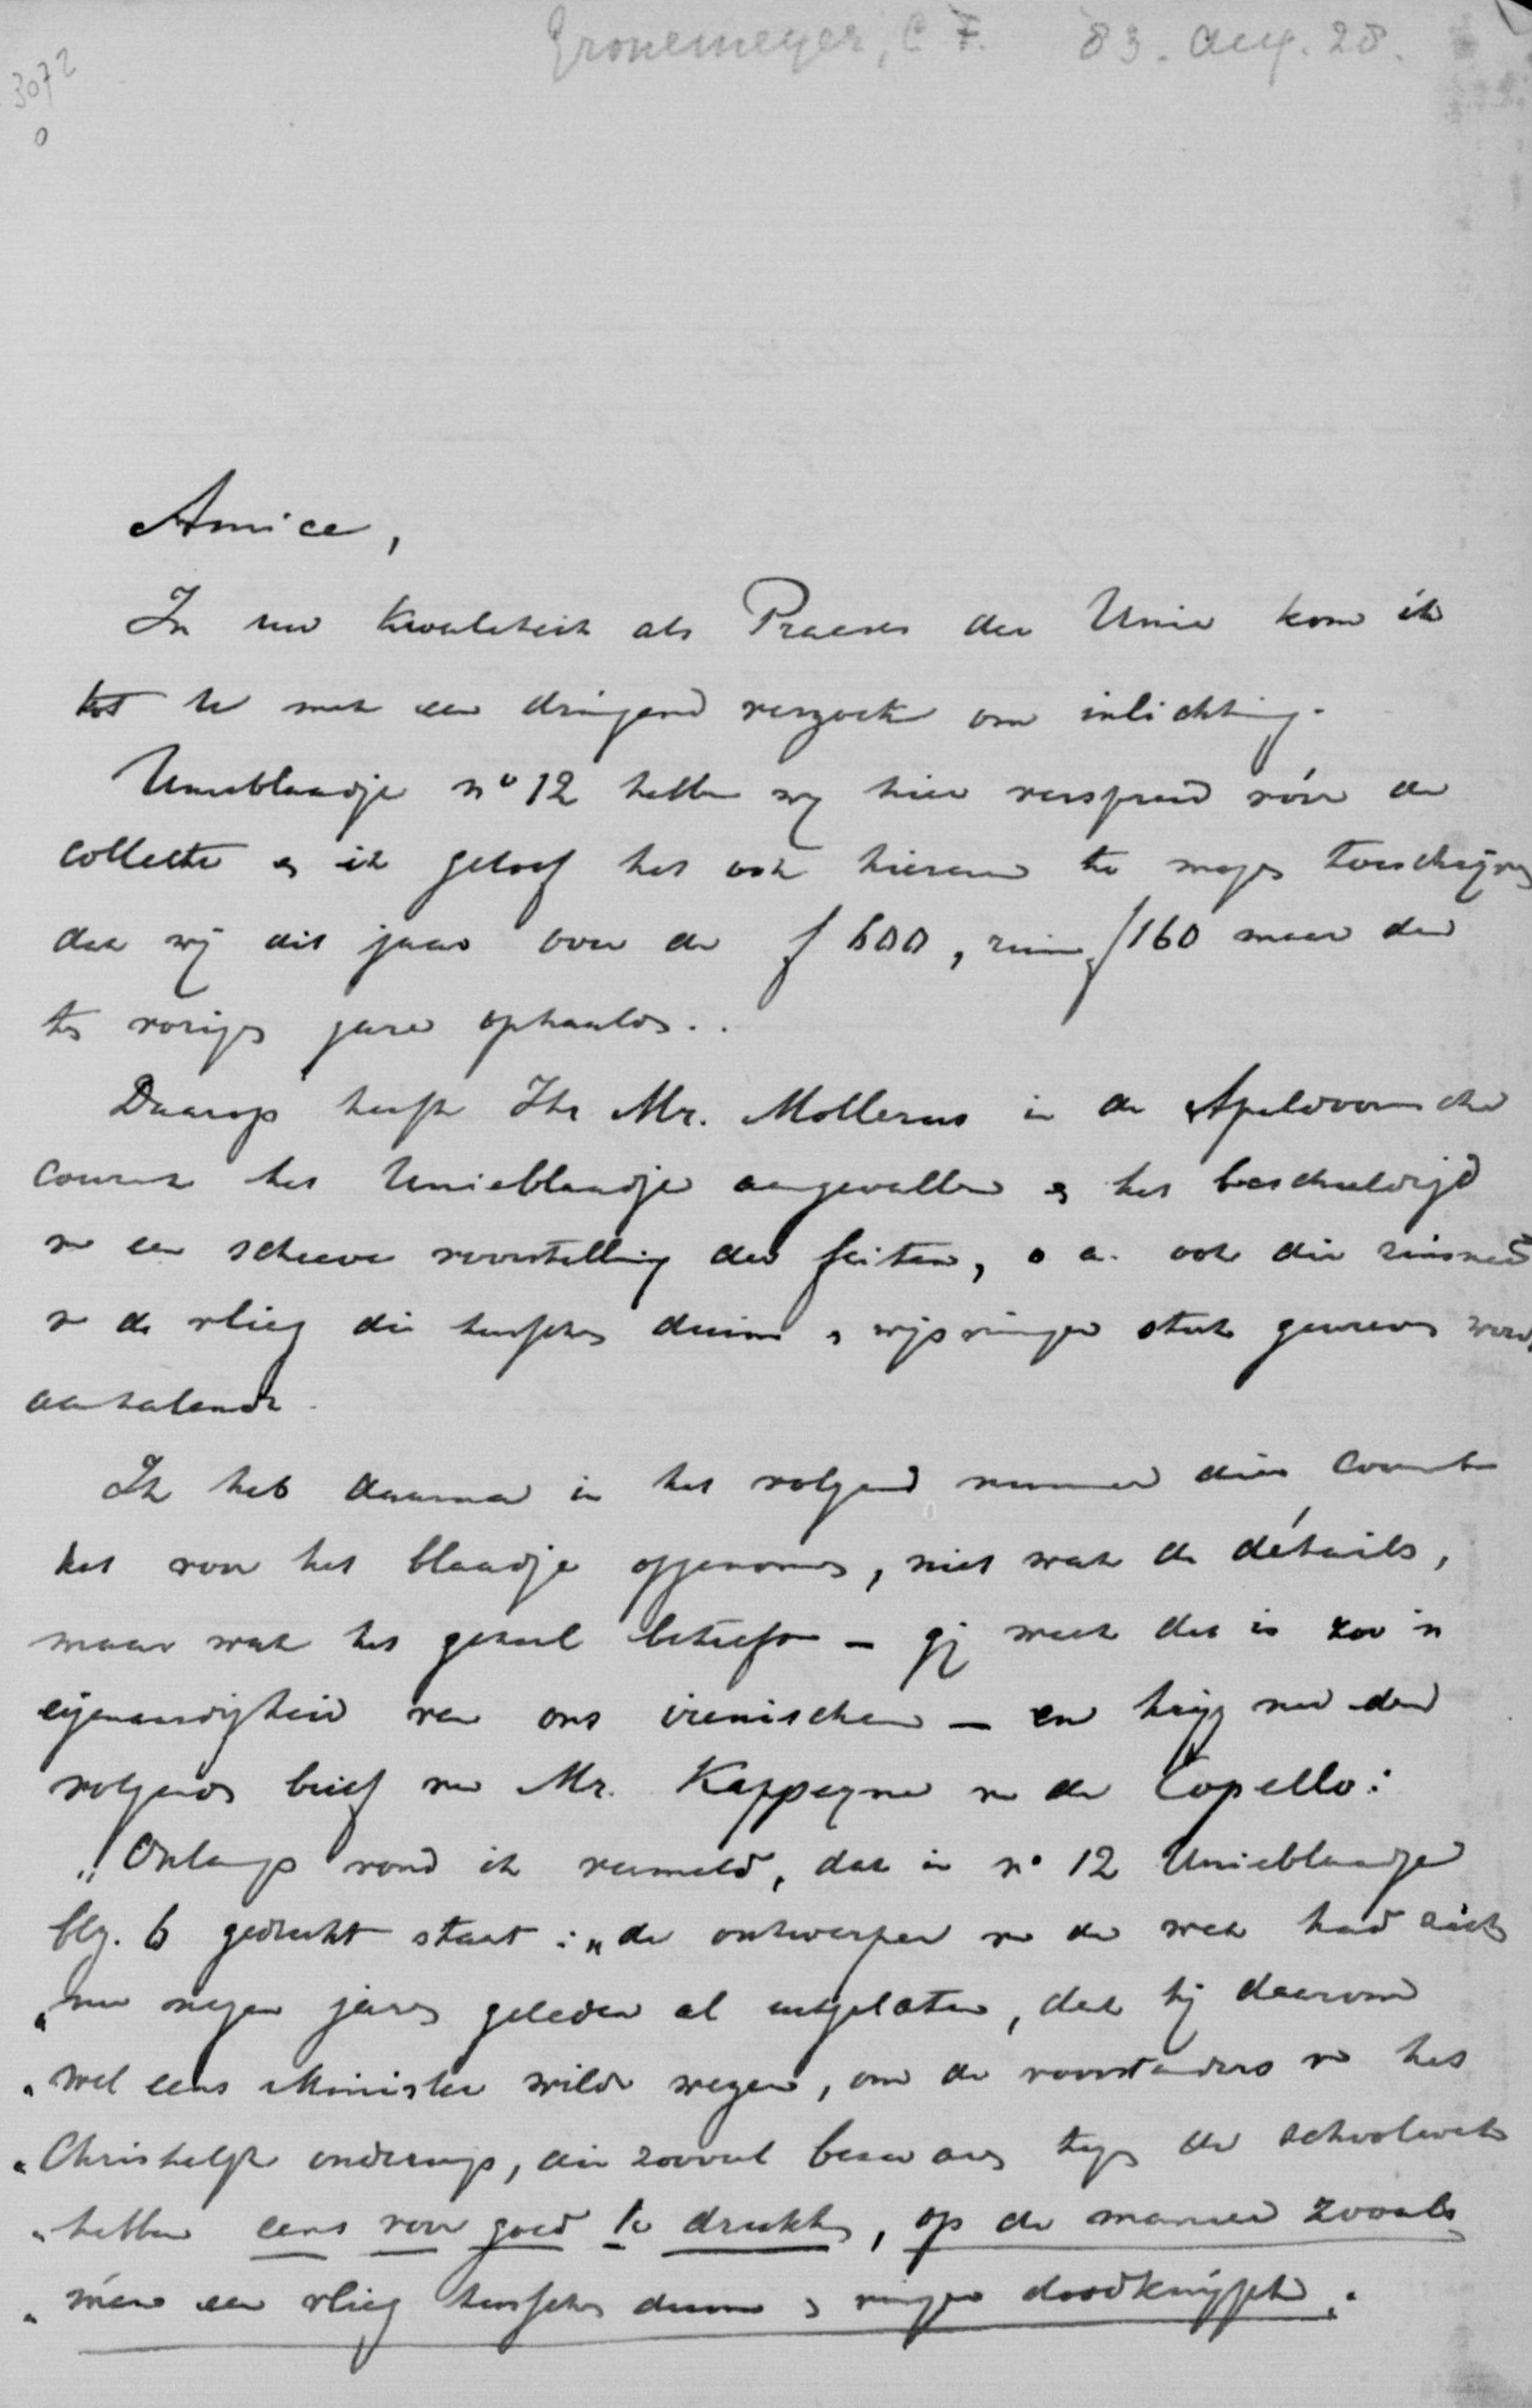 Gronemeyer, C F. 83. Aug. 28.
3072
0
Amice,
In uw kwaliteit als Praeses der Unie kom ik
tot U met een dringend verzoek om inlichting.
Unieblaadje no 12 hebben wij hier verspreid vóór de
collecte en ik geloof het ook hieraan te mogen toeschrijven
dat wij dit jaar over de f 600, ruim f 160 meer dan
ten vorigen jare ophaalden..
Daarop heeft Jhr Mr. Mollerus in de Apeldoornsche
courant het Unieblaadje aangevallen en het beschuldigd
van een scheeve voorstelling der feiten, o a. ook die zinsnede
van de vlieg die tusschen duim en wijsvinger stuk gewreven wordt
aanhalende.
Ik heb daarna in het volgend nummer dier courant
het voor het blaadje opgenomen, niet wat de détails,
maar wat het geheel betreft - gij weet dat is zoo'n
eigenaardigheid van ons irenischen - en krijg nu den
volgenden brief van Mr. Kappeyne van de Copello:
„Onlangs vond ik vermeld, dat in no 12 Unieblaadje
blz. 6 gedrukt staat: „de ontwerper van de wet had zich
„nu negen jaren geleden al uitgelaten, dat hij daarom
„wel eens Minister wilde wezen, om de voorstanders van het
„Christelijk onderwijs, die zooveel bezwaren tegen de schoolwet
„hebben eens voor goed te drukken, op de manier zooals
„men een vlieg tusschen duim en vinger doodknijpt."